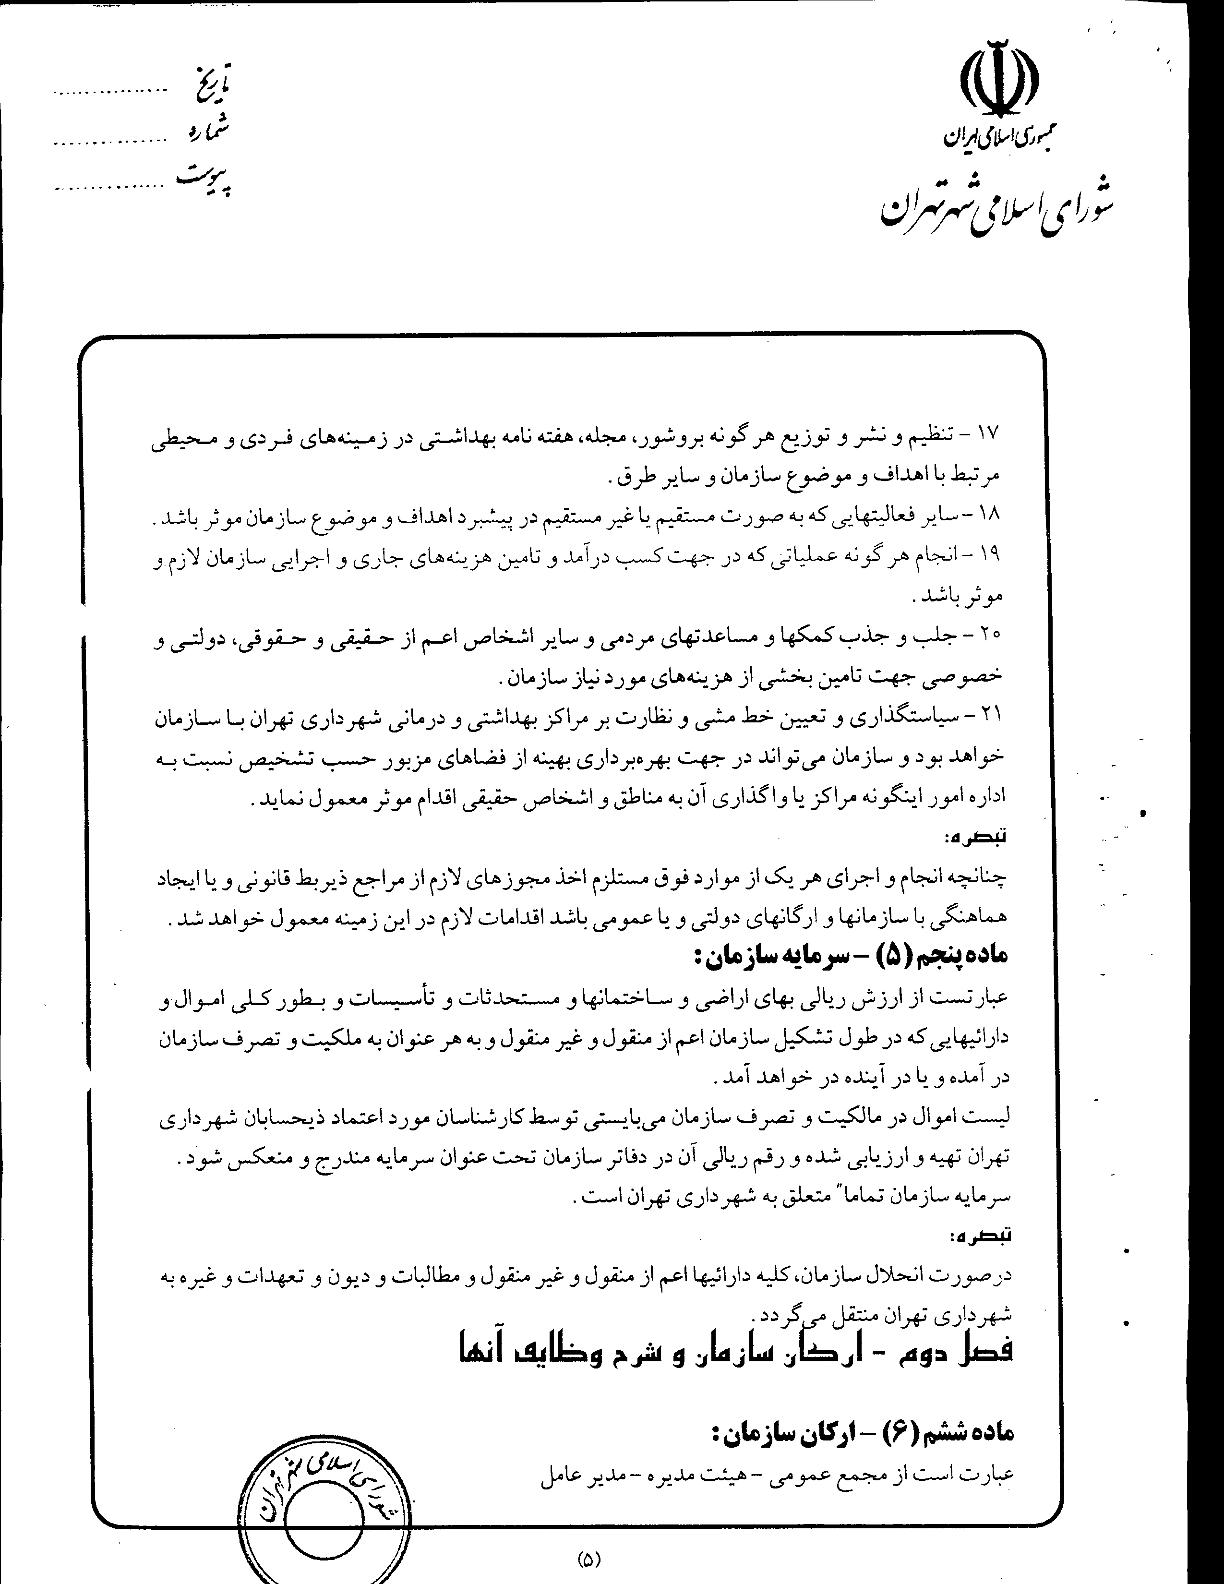 جمهوری اسلامی ایران
شورای اسلامی شهر تهران
تاریخ ................
شماره ................
پیوست ................
۱۷ - تنظیم و نشر و توزیع هر گونه بروشور، مجله، هفته نامه بهداشتی در زمینه‌های فردی و محیطی
مرتبط با اهداف و موضوع سازمان و سایر طرق .
۱۸ - سایر فعالیتهایی که به صورت مستقیم یا غیر مستقیم در پیشبرد اهداف و موضوع سازمان موثر باشد .
۱۹ - انجام هر گونه عملیاتی که در جهت کسب درآمد و تامین هزینه‌های جاری و اجرایی سازمان لازم و
موثر باشد .
۲۰ - جلب و جذب کمکها و مساعدتهای مردمی و سایر اشخاص اعم از حقیقی و حقوقی، دولتی و
خصوصی جهت تامین بخشی از هزینه‌های مورد نیاز سازمان .
۲۱ - سیاستگذاری و تعیین خط مشی و نظارت بر مراکز بهداشتی و درمانی شهرداری تهران با سازمان
خواهد بود و سازمان می‌تواند در جهت بهره‌برداری بهینه از فضاهای مزبور حسب تشخیص نسبت به
اداره امور اینگونه مراکز یا واگذاری آن به مناطق و اشخاص حقیقی اقدام موثر معمول نماید .
تبصره:
چنانچه انجام و اجرای هر یک از موارد فوق مستلزم اخذ مجوزهای لازم از مراجع ذیربط قانونی و یا ایجاد
هماهنگی با سازمانها و ارگانهای دولتی و یا عمومی باشد اقدامات لازم در این زمینه معمول خواهد شد .
ماده پنجم (۵) - سرمایه سازمان :
عبارتست از ارزش ریالی بهای اراضی و ساختمانها و مستحدثات و تأسیسات و بطور کلی اموال و
دارائیهایی که در طول تشکیل سازمان اعم از منقول و غیر منقول و به هر عنوان به ملکیت و تصرف سازمان
در آمده و یا در آینده در خواهد آمد .
لیست اموال در مالکیت و تصرف سازمان می‌بایستی توسط کارشناسان مورد اعتماد ذیحسابان شهرداری
تهران تهیه و ارزیابی شده و رقم ریالی آن در دفاتر سازمان تحت عنوان سرمایه مندرج و منعکس شود .
سرمایه سازمان تماما" متعلق به شهرداری تهران است .
تبصره:
در صورت انحلال سازمان، کلیه دارائیها اعم از منقول و غیر منقول و مطالبات و دیون و تعهدات و غیره به
شهرداری تهران منتقل می‌گردد .
فصل دوم - ارکان سازمان و شرح وظایف آنها
ماده ششم (۶) - ارکان سازمان :
عبارت است از مجمع عمومی - هیئت مدیره - مدیر عامل
شورای اسلامی شهر تهران
(۵)